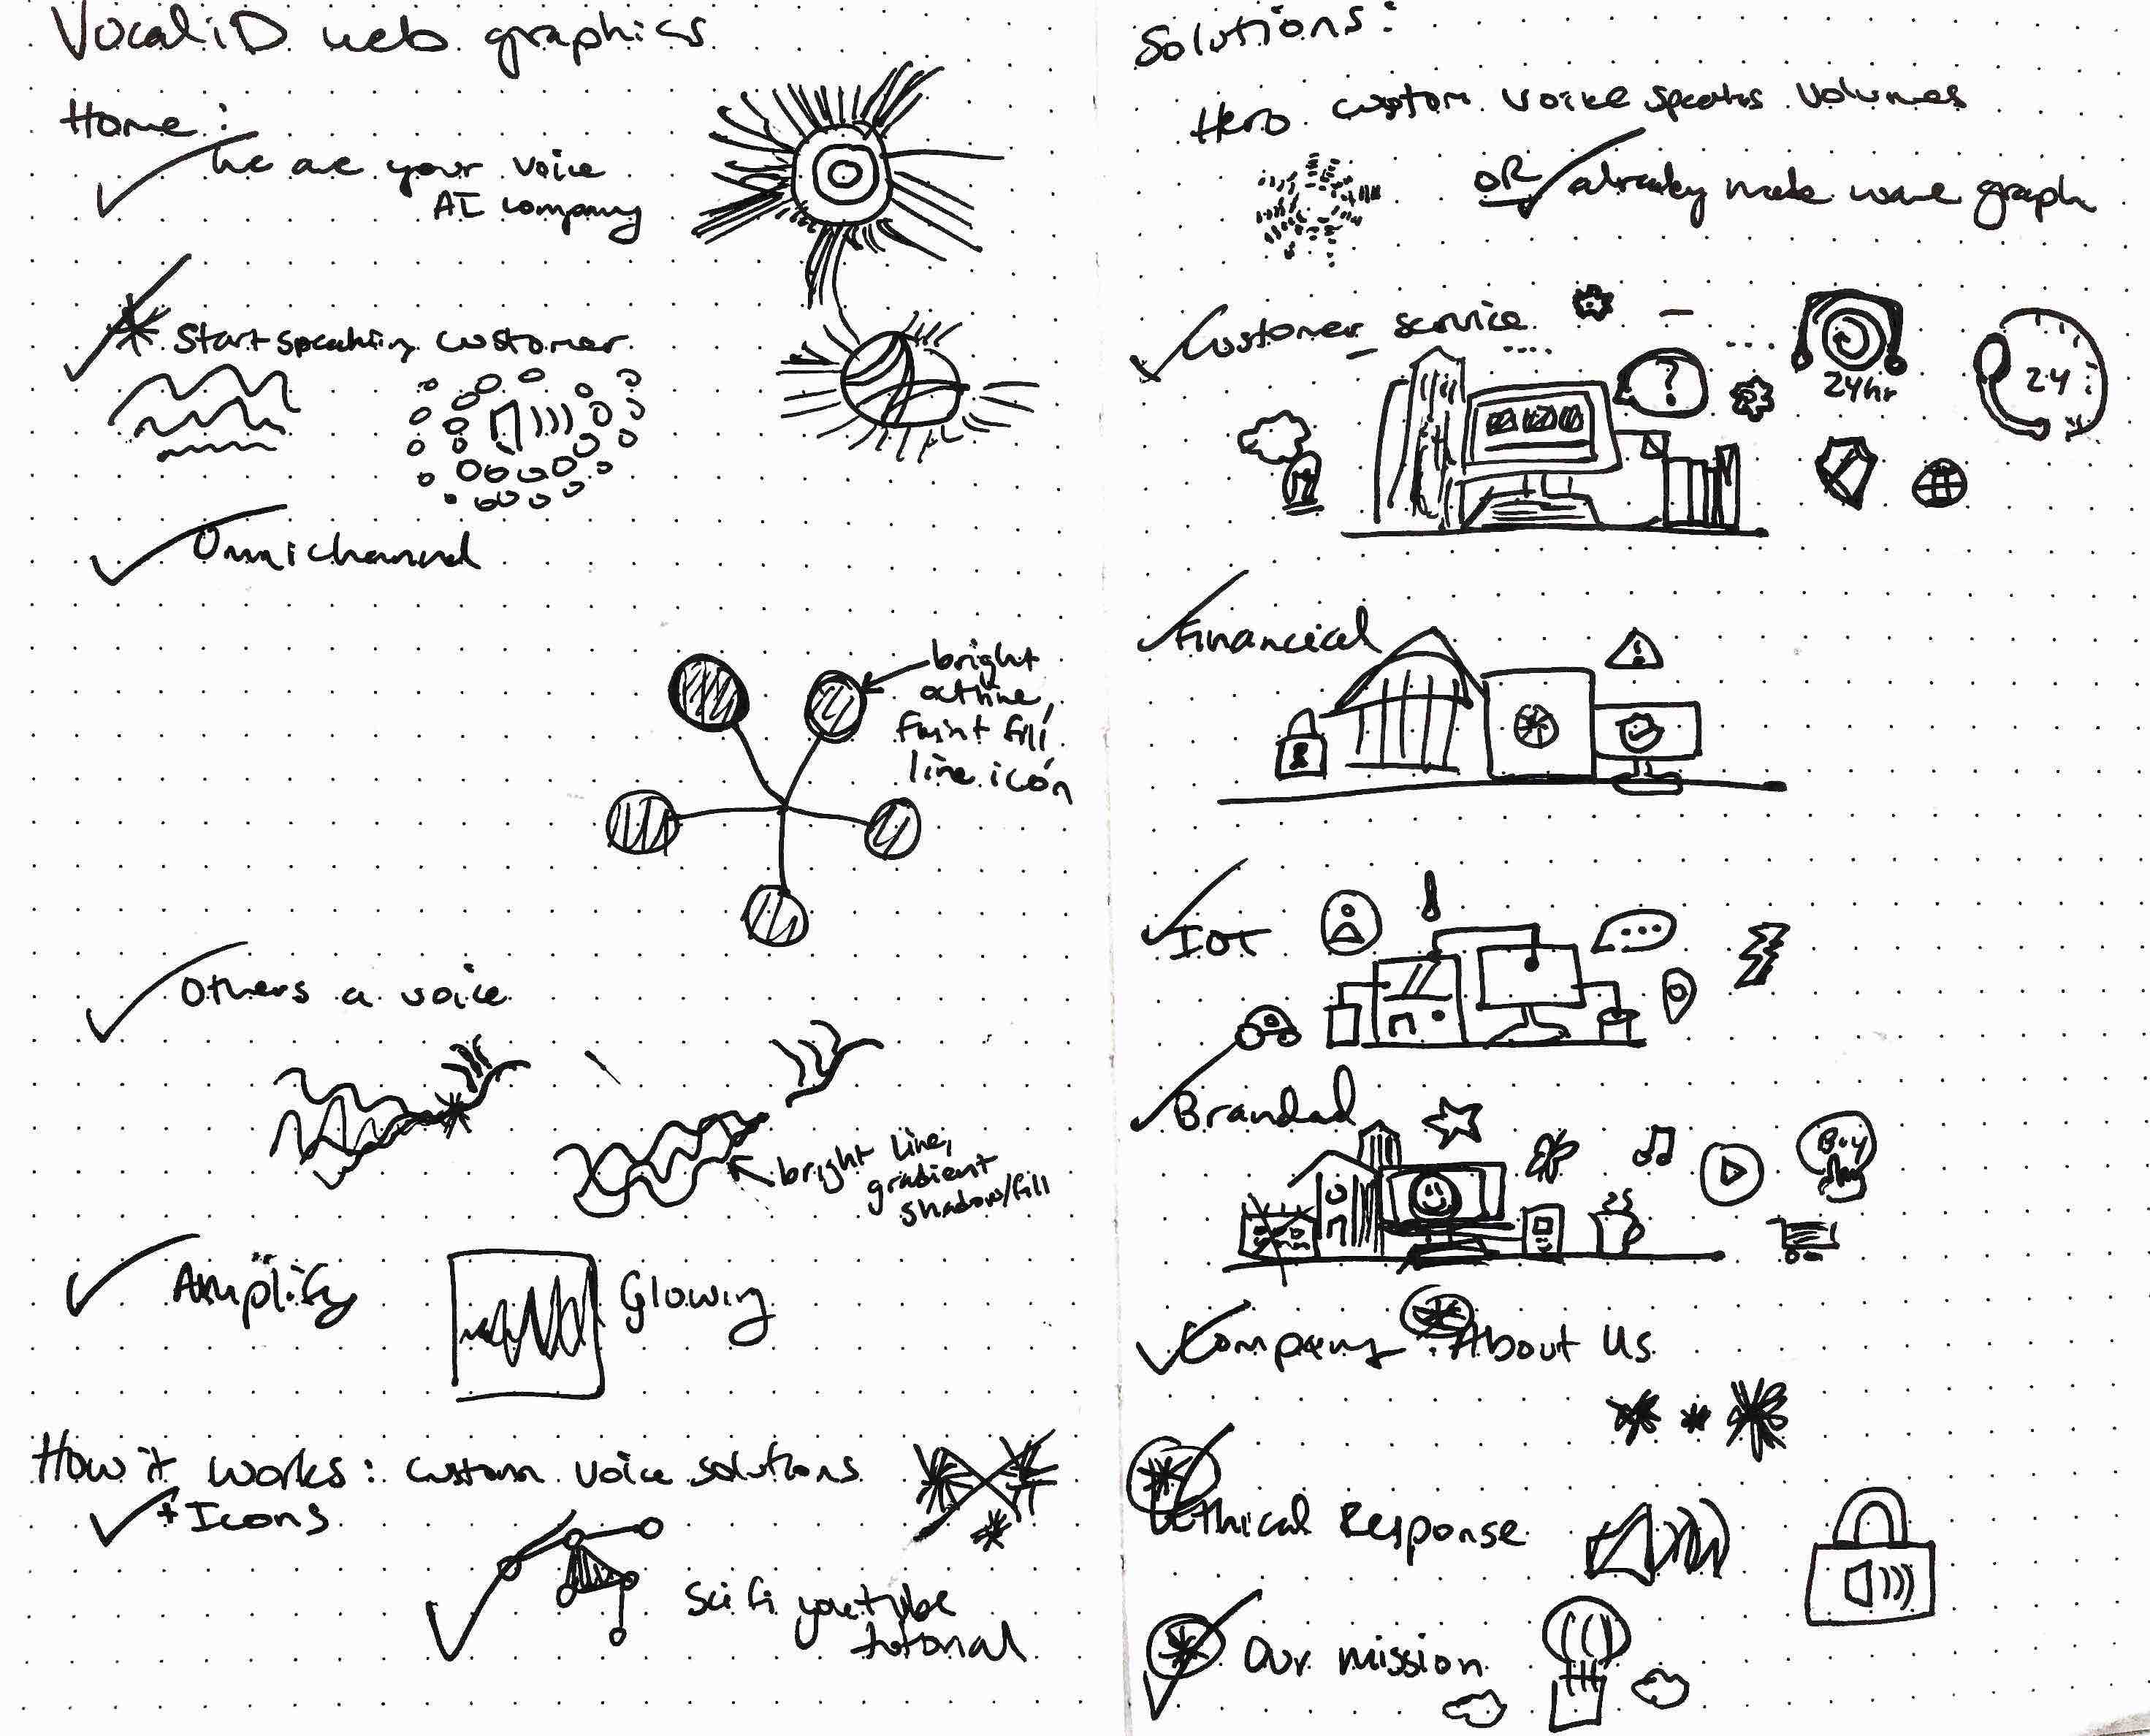 VocaliD web graphics
Home:
We are your voice
AI company
Start speaking customer
Omnichannel
bright
outline,
faint fill,
line icon
Others a voice
bright line,
gradient
shadow/fill
Amplify
Glowing
How it works: custom voice solutions
+ Icons
Sci fi youtube
tutorial
Solutions:
Hero custom voice speaks volumes
OR already made wave graph
Customer service
?
24hr
24
Financial
IOT
Branded
Buy
Company: About Us
Ethical Response
Our mission